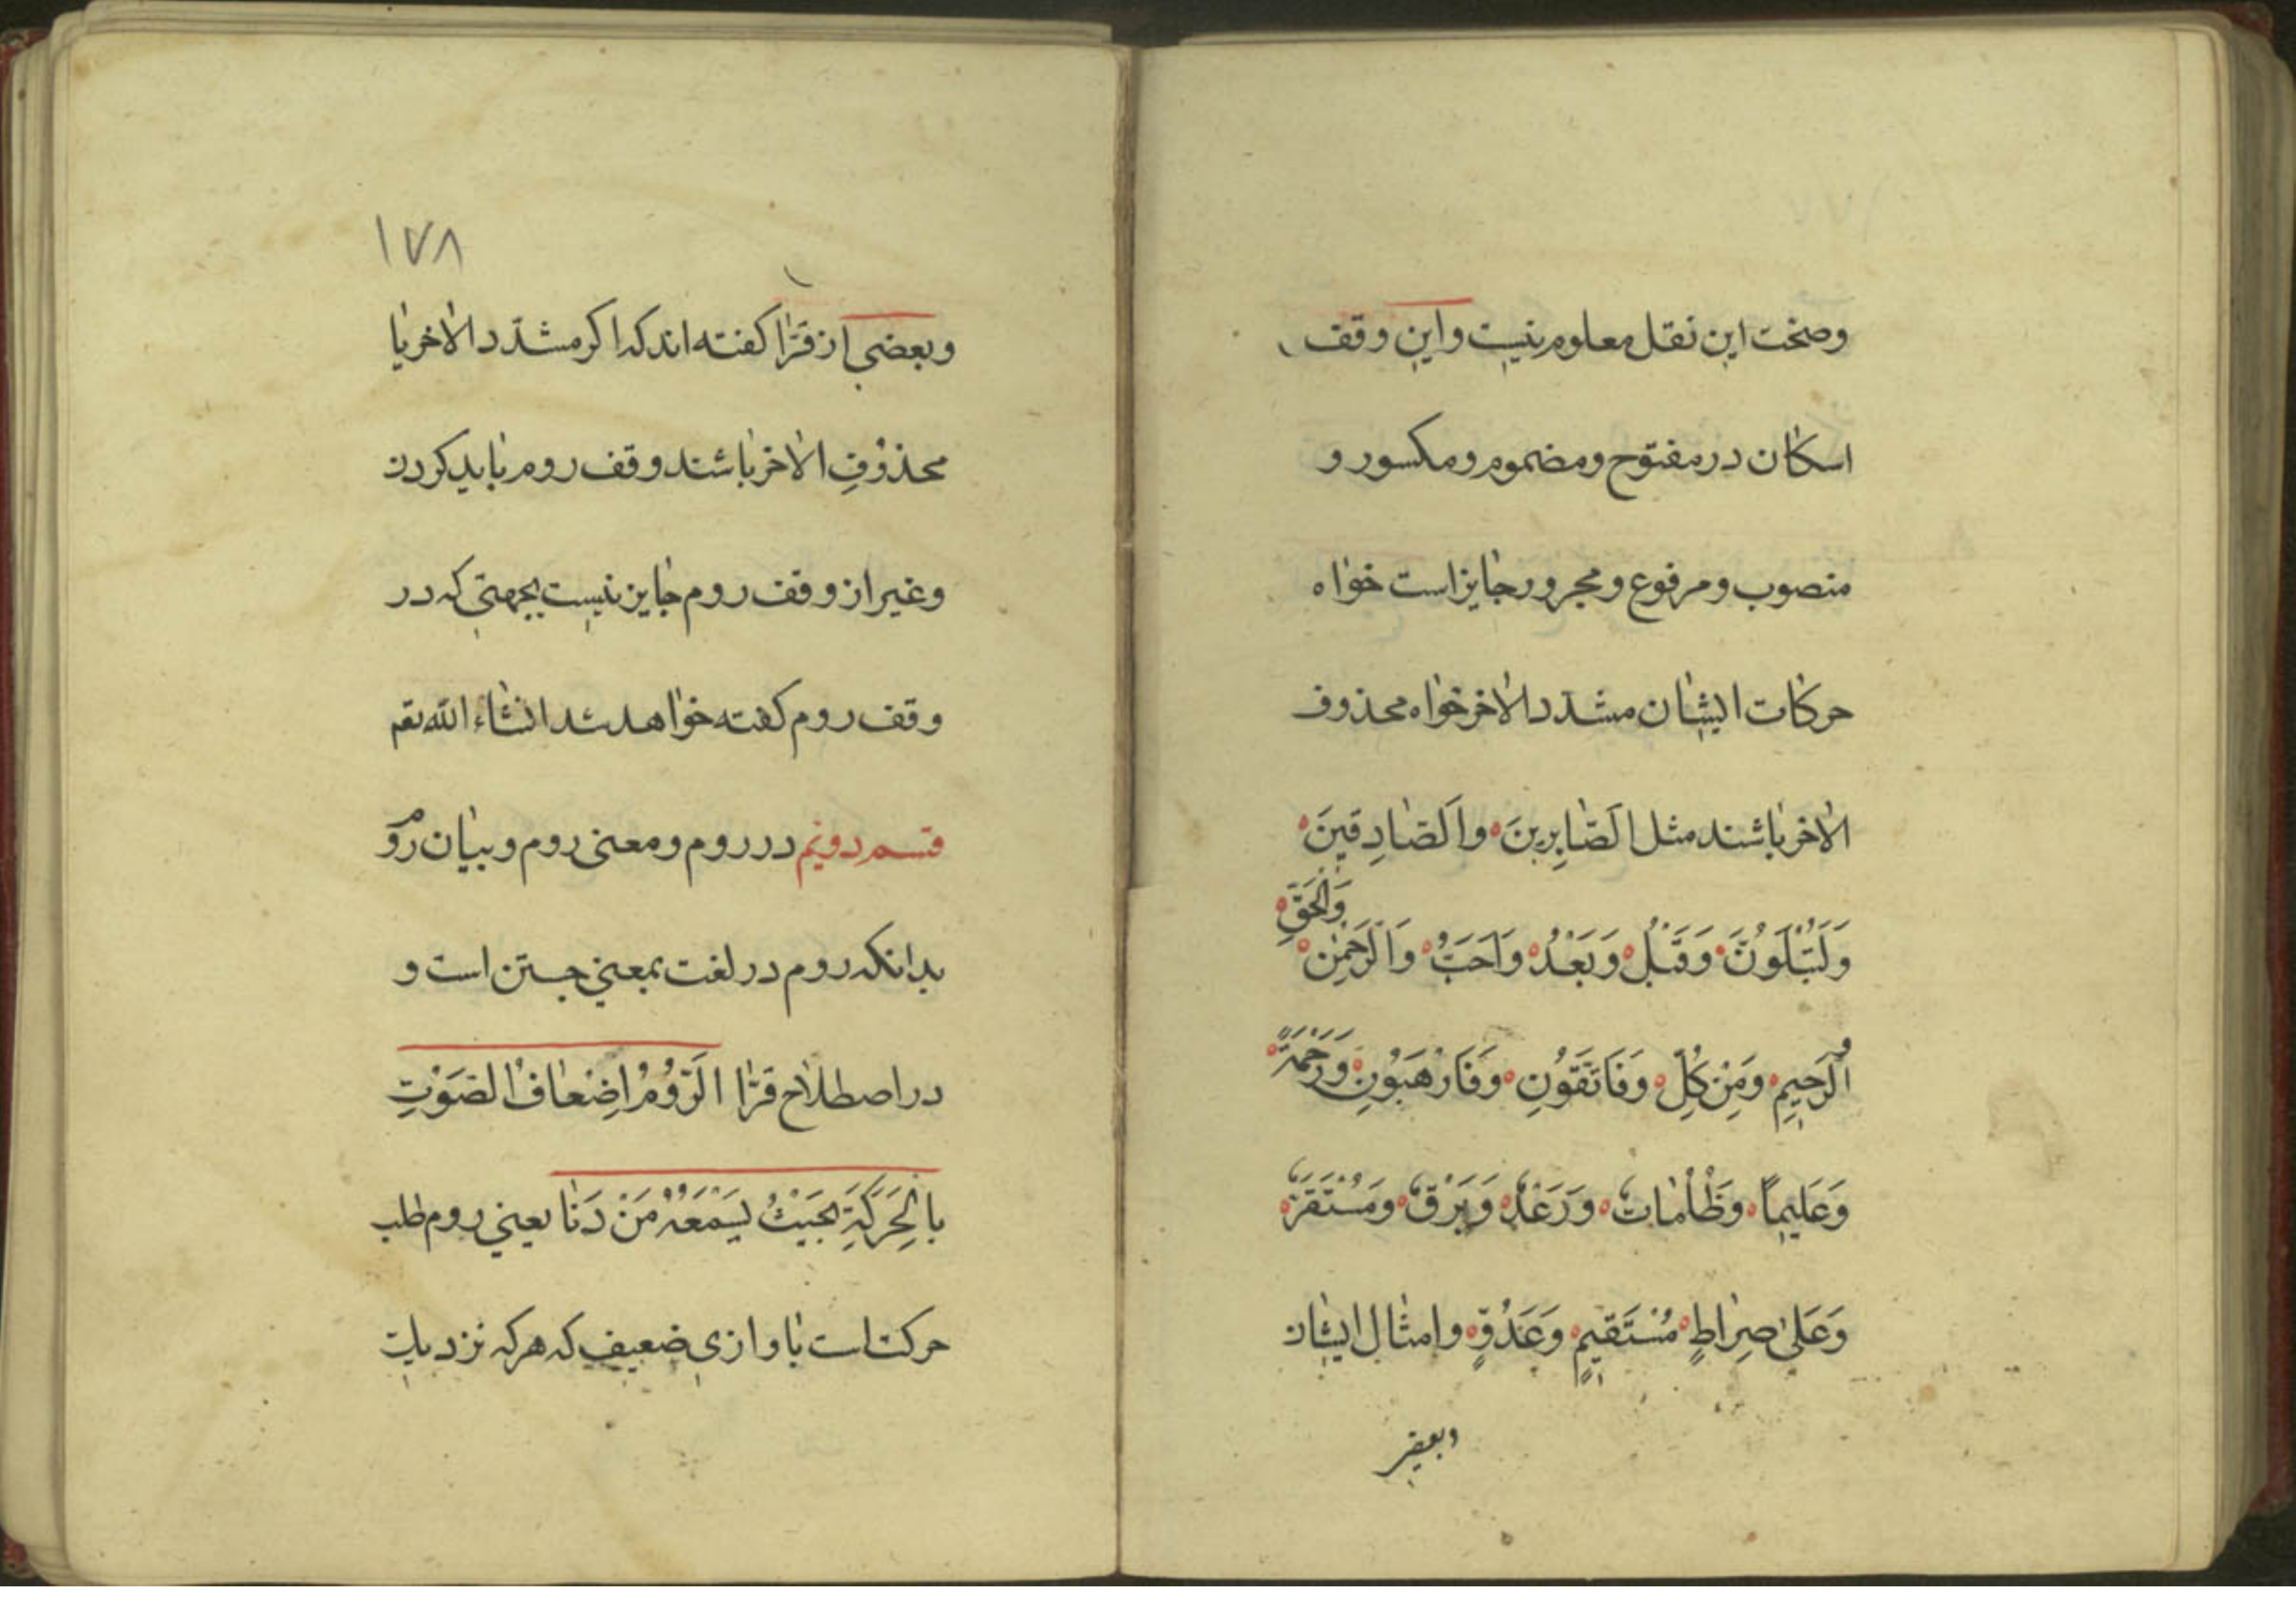 وصحت این نقل معلوم نیست و این وقف
اسکان در مفتوح و مضموم و مکسور و
منصوب و مرفوع و مجرور جایز است خواه
حرکات ایشان مشدد الاخر خواه محذوف
الاخر باشند مثل اَلصَّابِرِينَ وَاَلصَّادِقِينَ
وَالْحَقِّ
وَلَتُبْلَوُنَّ وَقَبْلُ وَبَعْدُ وَاَحَبُّ وَالرَّحْمٰنِ
اَلرَّحِيمِ وَمِنْ كُلِّ وَفَاتَّقُونِ وَفَارْهَبُونِ وَرَحْمَةً
وَعَلِيمًا وَظُلُمَاتٌ وَرَعْدٌ وَبَرْقٌ وَمُسْتَقَرٌّ
وَعَلىٰ صِرَاطٍ مُسْتَقِيمٍ وَعَدُوٍّ و امثال ایشان
وبعضی
١٧٨
وبعضی از قرّا کفته اند که اکر مشدّد الاخر یا
محذوُفِ الاخر باشند وقف روم باید کردن
وغیر از وقف روم جایز نیست بجهتی که در
وقف روم کفته خواهد شد انشاء الله تعم
قسم دویم در روم و معنی روم و بیان روم
بدانکه روم در لغت بمعنی جستن است و
در اصطلاح قرّا اَلرَّوْمُ اِضْعَافُ الصَوْتِ
بِالْحَرَكَةِ بِحَيْثُ يَسْمَعُهُ مَنْ دَنَا یعنی روم طلب
حرکت است باوازی ضعیف که هرکه نزدیک